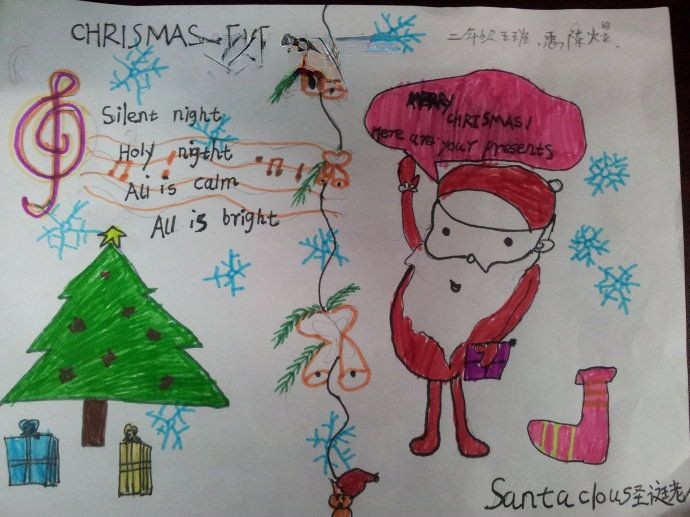 CHRISMAS
二年级五班
Silent night
Holy night
All is calm
All is bright
MERRY
CHRISMAS!
Here are your presents
Santa clous圣诞老人